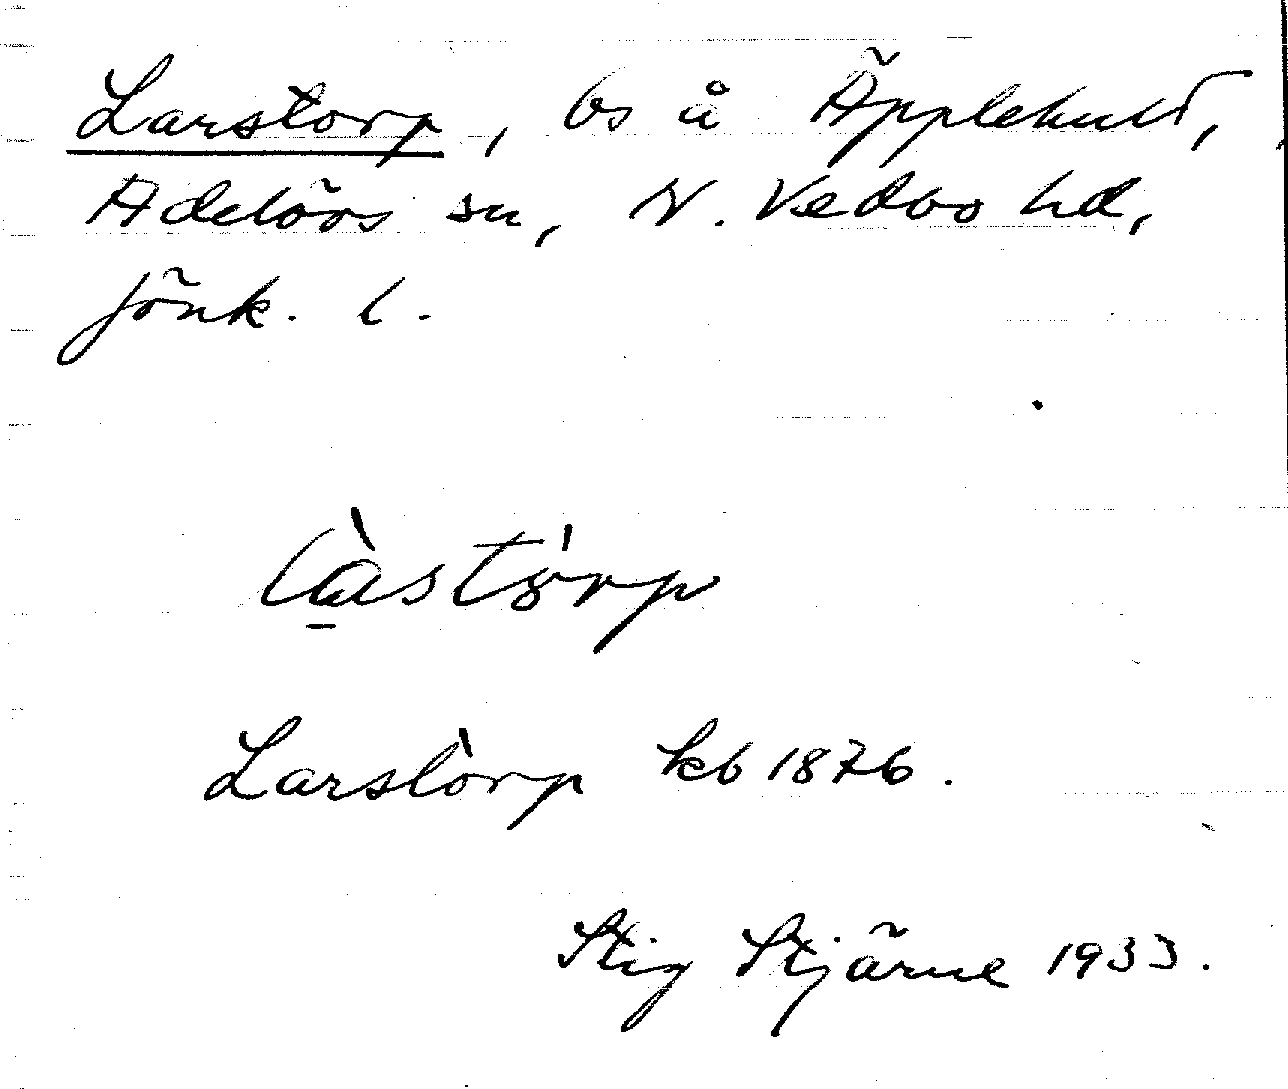 Larstorp, bs å Äpplehult,
Adelövs sn, N. Vedbo hd,
Jönk. l.
làstórp
Larstorp kb 1876.
Stig Stjärne 1933.